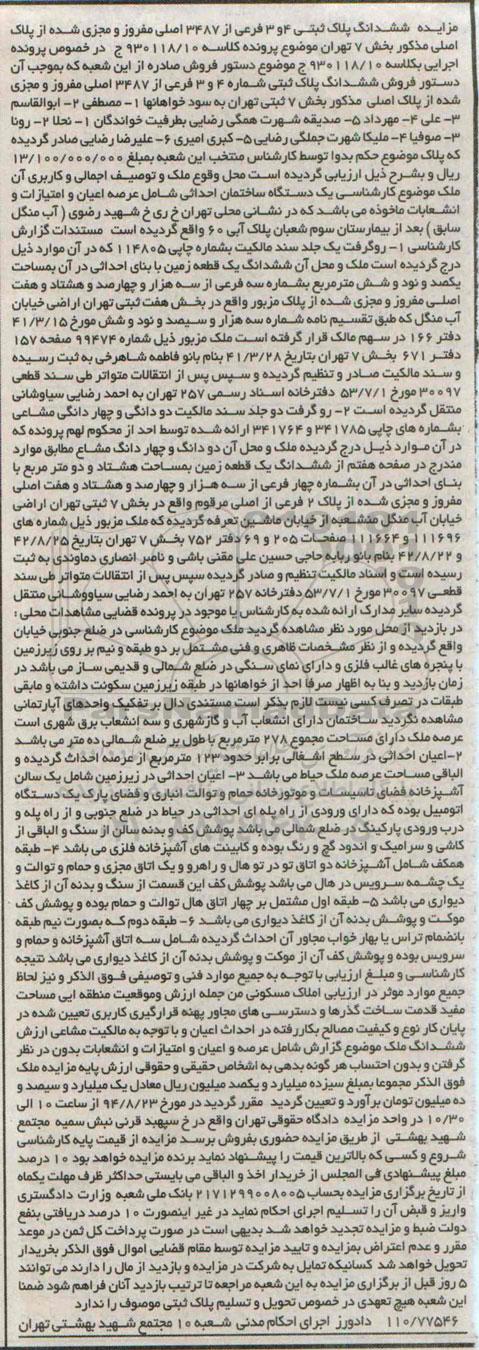 مزایده ششدانگ پلاک ثبتی ۴و ۳ فرعی از ۳۴۸۷ اصلی مفروز و مجزی شده از پلاک
اصلی مذکور بخش ۷ تهران موضوع پرونده کلاسه ۹۳۰۱۱۸/۱۰ ج در خصوص پرونده
اجرایی بکلاسه ۹۳۰۱۱۸/۱۰ ج موضوع دستور فروش صادره از این شعبه که بموجب آن
دستور فروش ششدانگ پلاک ثبتی شماره ۴ و ۳ فرعی از ۳۴۸۷ اصلی مفروز و مجزی
شده از پلاک اصلی مذکور بخش ۷ ثبتی تهران به سود خواهانها ۱- مصطفی ۲- ابوالقاسم
۳- علی ۴- مهرداد ۵- صدیقه شهرت همگی رضایی بطرفیت خواندگان ۱- نحلا ۲- رونا
۳- صوفیا ۴- ملیکا شهرت جملگی رضایی ۵- کبری امیری ۶- علیرضا رضایی صادر گردیده
که پلاک موضوع حکم بدوا توسط کارشناس منتخب این شعبه بمبلغ ۱۳/۱۰۰/۰۰۰/۰۰۰
ریال و بشرح ذیل ارزیابی گردیده است محل وقوع ملک و توصیف اجمالی و کاربری آن
ملک موضوع کارشناسی یک دستگاه ساختمان احداثی شامل عرصه اعیان و امتیازات و
انشعابات ماخوذه می باشد که در نشانی محلی تهران خ ری خ شهید رضوی ( آب منگل
سابق ) بعد از بیمارستان سوم شعبان پلاک آبی ۶۰ واقع گردیده است مستندات گزارش
کارشناسی ۱- روگرفت یک جلد سند مالکیت بشماره چاپی ۱۱۴۸۰۵ که در آن موارد ذیل
درج گردیده است ملک و محل آن ششدانگ یک قطعه زمین با بنای احداثی در آن بمساحت
یکصد و نود و شش مترمربع بشماره سه فرعی از سه هزار و چهارصد و هشتاد و هفت
اصلی مفروز و مجزی شده از پلاک مزبور واقع در بخش هفت ثبتی تهران اراضی خیابان
آب منگل که طبق تقسیم نامه شماره سه هزار و سیصد و نود و شش مورخ ۴۱/۳/۱۵
دفتر ۱۶۶ در سهم مالک قرار گرفته است ملک مزبور ذیل شماره ۹۹۴۷۴ صفحه ۱۵۷
دفتر ۶۷۱ بخش ۷ تهران بتاریخ ۴۱/۳/۲۸ بنام بانو فاطمه شاهرخی به ثبت رسیده
و سند مالکیت صادر و تنظیم گردیده و سپس پس از انتقالات متواتر طی سند قطعی
۳۰۰۹۷ مورخ ۵۳/۷/۱ دفترخانه اسناد رسمی ۲۵۷ تهران به احمد رضایی سیاوشانی
منتقل گردیده است ۲- رو گرفت دو جلد سند مالکیت دو دانگی و چهار دانگی مشاعی
بشماره های چاپی ۳۴۱۷۸۵ و ۳۴۱۷۶۴ ارائه شده توسط احد از محکوم لهم پرونده که
در آن موارد ذیل درج گردیده ملک و محل آن دو دانگ و چهار دانگ مشاع مطابق موارد
مندرج در صفحه هفتم از ششدانگ یک قطعه زمین بمساحت هشتاد و دو متر مربع با
بنای احداثی در آن بشماره چهار فرعی از سه هزار و چهارصد و هشتاد و هفت اصلی
مفروز و مجزی شده از پلاک ۲ فرعی از اصلی مرقوم واقع در بخش ۷ ثبتی تهران اراضی
خیابان آب منگل منشعبه از خیابان ماشین تعرفه گردیده که ملک مزبور ذیل شماره های
۱۱۱۶۹۶ و ۱۱۱۶۶۴ صفحات ۲۰۵ و ۶۹ دفتر ۷۵۲ بخش ۷ تهران بتاریخ ۴۲/۸/۲۵
و ۴۲/۸/۲۲ بنام بانو ربابه حاجی حسین علی مقنی باشی و ناصر انصاری دماوندی به ثبت
رسیده است و اسناد مالکیت تنظیم و صادر گردیده سپس پس از انتقالات متواتر طی سند
قطعی ۳۰۰۹۷ مورخ ۵۳/۷/۱ دفترخانه ۲۵۷ تهران به احمد رضایی سیاووشانی منتقل
گردیده سایر مدارک ارائه شده به کارشناس یا موجود در پرونده قضایی مشاهدات محلی :
در بازدید از محل مورد نظر مشاهده گردید ملک موضوع کارشناسی در ضلع جنوبی خیابان
واقع گردیده و از نظر مشخصات ظاهری و فنی مشتمل بر دو طبقه و نیم بر روی زیرزمین
با پنجره های غالب فلزی و دارای نمای سنگی در ضلع شمالی و قدیمی ساز می باشد در
زمان بازدید و بنا به اظهار صرفا احد از خواهانها در طبقه زیرزمین سکونت داشته و مابقی
طبقات در تصرف کسی نیست لازم بذکر است مستندی دال بر تفکیک واحدهای آپارتمانی
مشاهده نگردید ساختمان دارای انشعاب آب و گازشهری و سه انشعاب برق شهری است
عرصه ملک دارای مساحت مجموع ۲۷۸ مترمربع با طول بر ضلع شمالی ده متر می باشد
۲-اعیان احداثی در سطح اشغالی برابر حدود ۱۲۳ مترمربع از عرصه احداث گردیده و
الباقی مساحت عرصه ملک حیاط می باشد ۳- اعیان احداثی در زیرزمین شامل یک سالن
آشپزخانه فضای تاسیسات و موتورخانه حمام و توالت انباری و فضای پارک یک دستگاه
اتومبیل بوده که دارای ورودی از راه پله ای احداثی در حیاط در ضلع جنوبی و از راه پله و
درب ورودی پارکینگ در ضلع شمالی می باشد پوشش کف و بدنه سالن از سنگ و الباقی از
کاشی و سرامیک و اندود گچ و رنگ بوده و کابینت های آشپزخانه فلزی می باشد ۴- طبقه
همکف شامل آشپزخانه دو اتاق تو در تو هال و راهرو و یک اتاق مجزی و حمام و توالت و
یک چشمه سرویس در هال می باشد پوشش کف این قسمت از سنگ و بدنه آن از کاغذ
دیواری می باشد ۵- طبقه اول مشتمل بر چهار اتاق هال توالت و حمام بوده و پوشش کف
موکت و پوشش بدنه آن از کاغذ دیواری می باشد ۶- طبقه دوم که بصورت نیم طبقه
بانضمام تراس یا بهار خواب مجاور آن احداث گردیده شامل سه اتاق آشپزخانه و حمام و
سرویس بوده و پوشش کف آن از موکت و پوشش بدنه آن از کاغذ دیواری می باشد نتیجه
کارشناسی و مبلغ ارزیابی با توجه به جمیع موارد فنی و توصیفی فوق الذکر و نیز لحاظ
جمیع موارد موثر در ارزیابی املاک مسکونی من جمله ارزش وموقعیت منطقه ایی مساحت
مفید قدمت ساخت گذرها و دسترسی های مجاور پهنه قرارگیری کاربری تعیین شده در
پایان کار نوع و کیفیت مصالح بکاررفته در احداث اعیان و با توجه به مالکیت مشاعی ارزش
ششدانگ ملک موضوع گزارش شامل عرصه و اعیان و امتیازات و انشعابات بدون در نظر
گرفتن و بدون احتساب هر گونه بدهی به اشخاص حقیقی و حقوقی ارزش پایه مزایده ملک
فوق الذکر مجموعا بمبلغ سیزده میلیارد و یکصد میلیون ریال معادل یک میلیارد و سیصد و
ده میلیون تومان برآورد و تعیین گردید مقرر گردید در مورخ ۹۴/۸/۲۳ از ساعت ۱۰ الی
۱۰/۳۰ در واحد مزایده دادگاه حقوقی تهران واقع در خ سپهبد قرنی نبش سمیه مجتمع
شهید بهشتی از طریق مزایده حضوری بفروش برسد مزایده از قیمت پایه کارشناسی
شروع و کسی که بالاترین قیمت را پیشنهاد نماید برنده مزایده خواهد بود ۱۰ درصد
مبلغ پیشنهادی فی المجلس از خریدار اخذ و الباقی می بایستی حداکثر ظرف مهلت یکماه
از تاریخ برگزاری مزایده بحساب ۲۱۷۱۲۹۹۰۰۸۰۰۵ بانک ملی شعبه وزارت دادگستری
واریز و قبض آن را تسلیم اجرای احکام نماید در غیر اینصورت ۱۰ درصد دریافتی بنفع
دولت ضبط و مزایده تجدید خواهد شد بدیهی است در صورت پرداخت کل ثمن در موعد
مقرر و عدم اعتراض بمزایده و تایید مزایده توسط مقام قضایی اموال فوق الذکر بخریدار
تحویل خواهد شد کسانیکه تمایل به شرکت در مزایده و بازدید از مال را دارند می توانند
۵ روز قبل از برگزاری مزایده به این شعبه مراجعه تا ترتیب بازدید آنان فراهم شود ضمنا
این شعبه هیچ تعهدی در خصوص تحویل و تسلیم پلاک ثبتی موصوف را ندارد
۱۱۰/۷۷۵۴۶ دادورز اجرای احکام مدنی شعبه ۱۰ مجتمع شهید بهشتی تهران